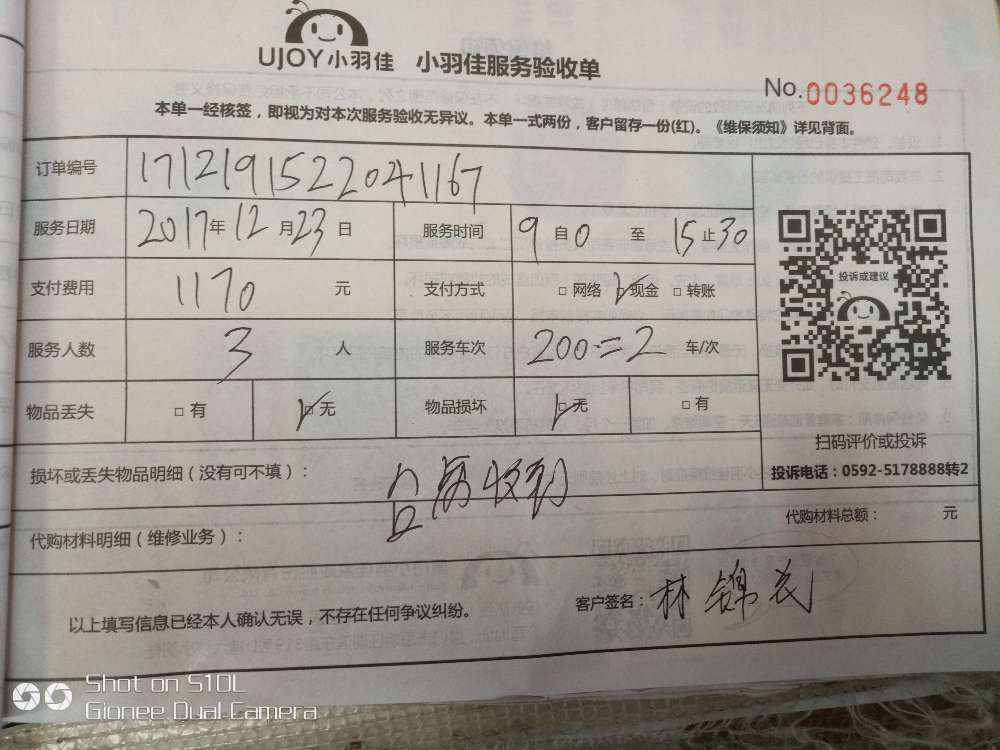 UJOY小羽佳 小羽佳服务验收单
No.0036248
本单一经核签，即视为对本次服务验收无异议。本单一式两份，客户留存一份(红)。《维保须知》详见背面。
订单编号 171219152204 1167
服务日期 2017年12月23日 服务时间 9自0至15止30
支付费用 1170 元 支付方式 □网络 ☑现金 □转账
投诉或建议
服务人数 3 人 服务车次 200=2 车/次
物品丢失 □有 ☑无 物品损坏 ☑无 □有
扫码评价或投诉
损坏或丢失物品明细（没有可不填）： 收到
投诉电话：0592-5178888转2
代购材料明细（维修业务）： 代购材料总额： 元
以上填写信息已经本人确认无误，不存在任何争议纠纷。 客户签名：林锦花
Shot on S10L
Gionee Dual Camera